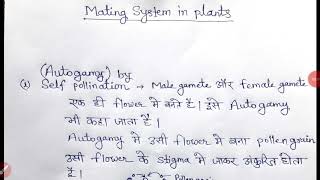 Mating System in plants
(Autogamy) by
① Self pollination → Male gamete और female gamete
एक ही flower में बनते हैं। इसे Autogamy
भी कहा जाता है।
Autogamy में उसी flower में बना pollengrain
उसी flower के stigma में जाकर अंकुरित होता
है।